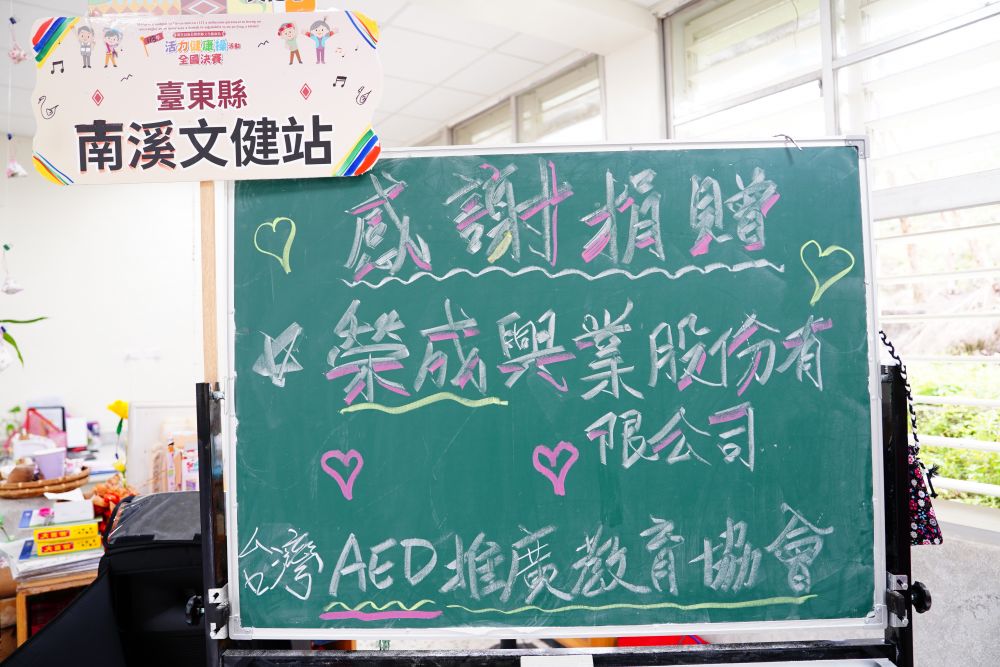 活力健康操活動
全國決賽
臺東縣
南溪文健站
感謝捐贈
榮成興業股份有
限公司
台灣AED推廣教育協會